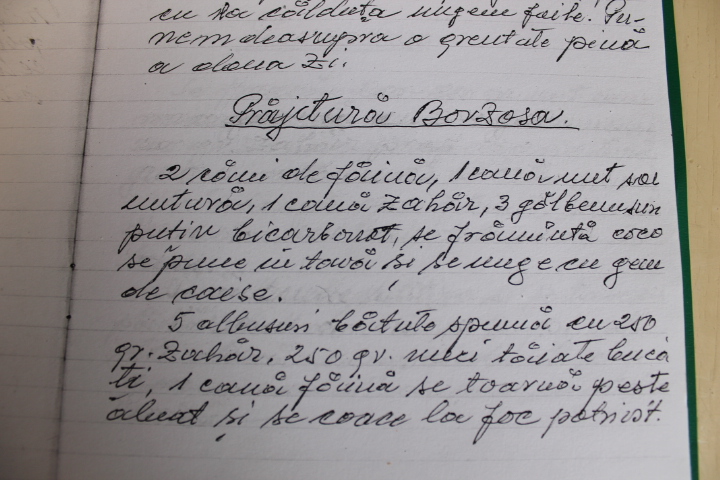 cu să călduță ungem foile. Pu-
nem deasupra o greutate pînă
a doua zi.
Prăjitură Borzosa.
2 căni de făină, 1 cană unt sau
untură, 1 cană zahăr, 3 gălbenusuri
putin bicarbonat, se frămîntă coco
se pune în tavă și se unge cu gem
de caise.
5 albusuri bătute spumă cu 250
gr. zahăr, 250 gr. nuci tăiate bucă
ti, 1 cană făină se toarnă peste
áluat și se coace la foc potrivit.